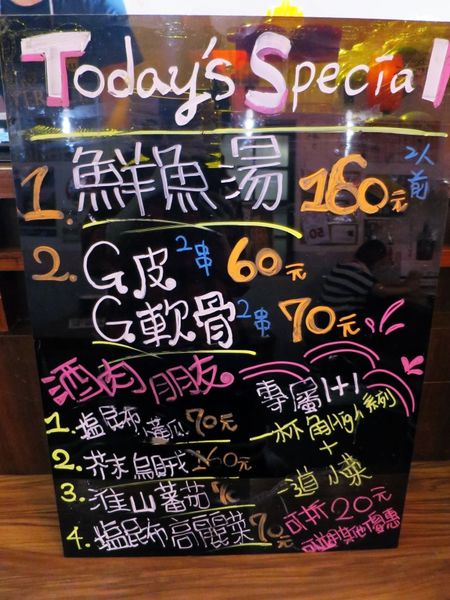 Today's Special
1. 鮮魚湯 160元 2人前
2. G皮 2串 60元
G軟骨 2串 70元
酒肉朋友
1. 塩昆布小黃瓜 70元
2. 芥末烏賊 元
3. 淮山蕃茄 70
4. 塩昆布高麗菜 70元
專屬1+1
一杯角High系列
+
一道小菜
可折20元
其他優惠